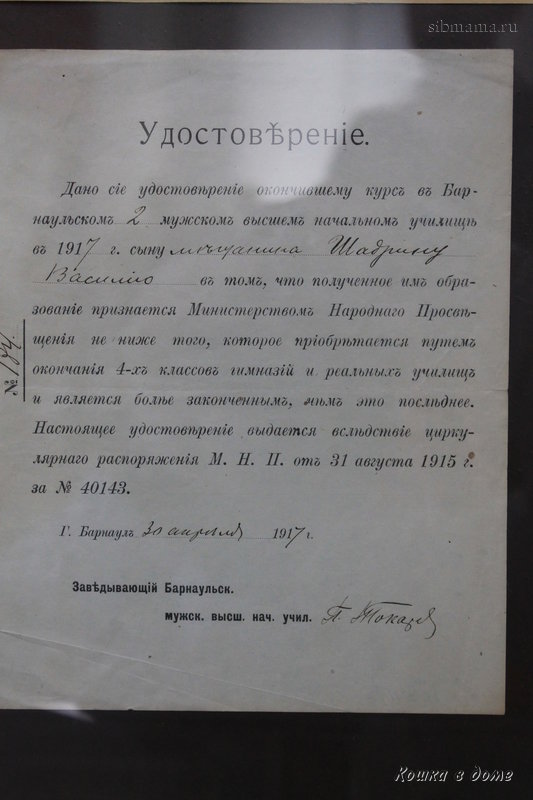 sibmama.ru
Удостовѣреніе.
Дано сіе удостовѣреніе окончившему курсъ въ Бар-
наульскомъ 2 мужскомъ высшемъ начальномъ училищѣ
въ 1917 г. сыну мѣщанина Шадрину
Василію въ томъ, что полученное имъ обра-
зованіе признается Министерствомъ Народнаго Просвѣ-
щенія не ниже того, которое пріобрѣтается путемъ
окончанія 4-хъ классовъ гимназій и реальныхъ училищъ
и является болѣе законченнымъ, чѣмъ это послѣднее.
Настоящее удостовѣреніе выдается вслѣдствіе цирку-
лярнаго распоряженія М. Н. П. отъ 31 августа 1915 г.
за № 40143.
№
Г. Барнаулъ 30 апрѣля 1917 г.
Завѣдывающій Барнаульск.
мужск. высш. нач. учил. П. Токарев
Кошка в доме